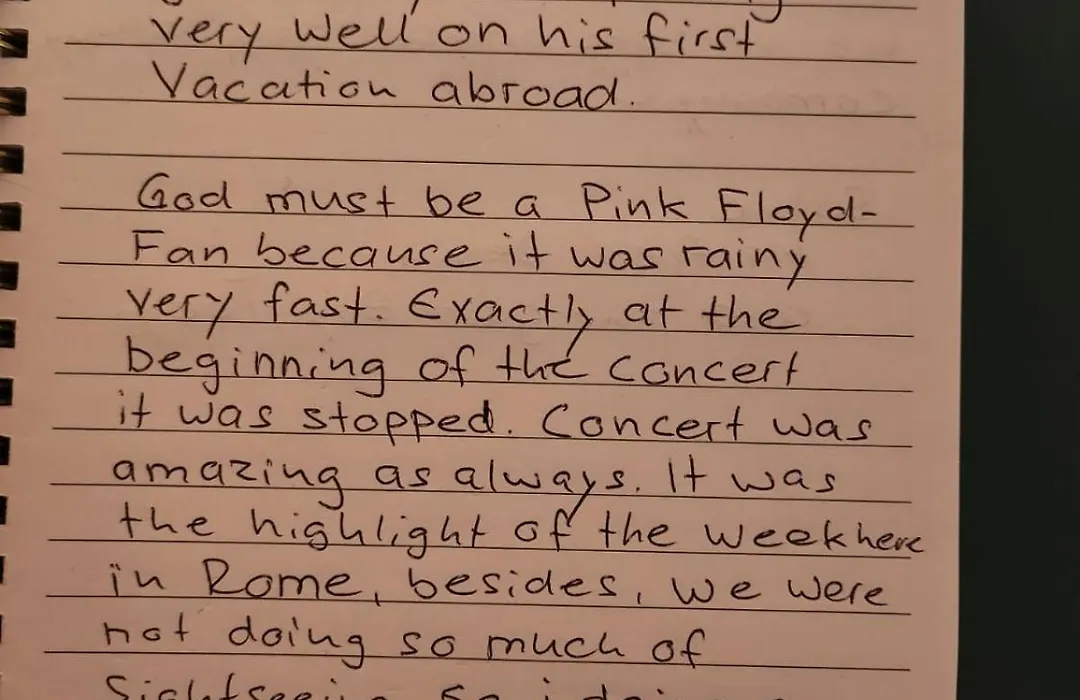 very well on his first
Vacation abroad.
God must be a Pink Floyd-
Fan because it was rainy
very fast. Exactly at the
beginning of the concert
it was stopped. Concert was
amazing as always. It was
the highlight of the week here
in Rome, besides, we were
not doing so much of